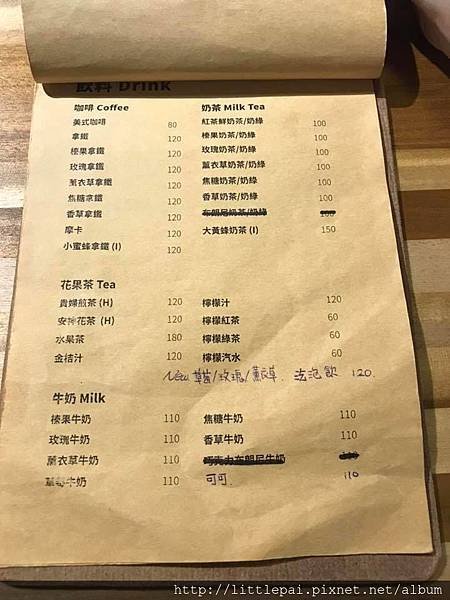 飲料 Drink
咖啡 Coffee
美式咖啡 80
拿鐵 120
榛果拿鐵 120
玫瑰拿鐵 120
薰衣草拿鐵 120
焦糖拿鐵 120
香草拿鐵 120
摩卡 120
小蜜蜂拿鐵 (I) 120
奶茶 Milk Tea
紅茶鮮奶茶/奶綠 100
榛果奶茶/奶綠 100
玫瑰奶茶/奶綠 100
薰衣草奶茶/奶綠 100
焦糖奶茶/奶綠 100
香草奶茶/奶綠 100
布朗尼奶茶/奶綠 100
大黃蜂奶茶 (I) 150
花果茶 Tea
貴婦煎茶 (H) 120
安神花茶 (H) 120
水果茶 180
金桔汁 120
檸檬汁 120
檸檬紅茶 60
檸檬綠茶 60
檸檬汽水 60
New 草莓/玫瑰/薰衣草 氣泡飲 120
牛奶 Milk
榛果牛奶 110
玫瑰牛奶 110
薰衣草牛奶 110
草莓牛奶 110
焦糖牛奶 110
香草牛奶 110
巧克力布朗尼牛奶
可可 110
http://littlepai.pixnet.net/album